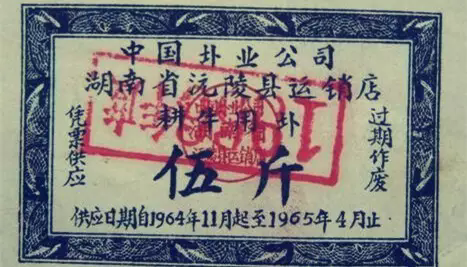 中国卦业公司
湖南省沅陵县运销店
耕牛用卦
凭票供应
伍斤
过期作废
供应日期自1964年11月起至1965年4月止